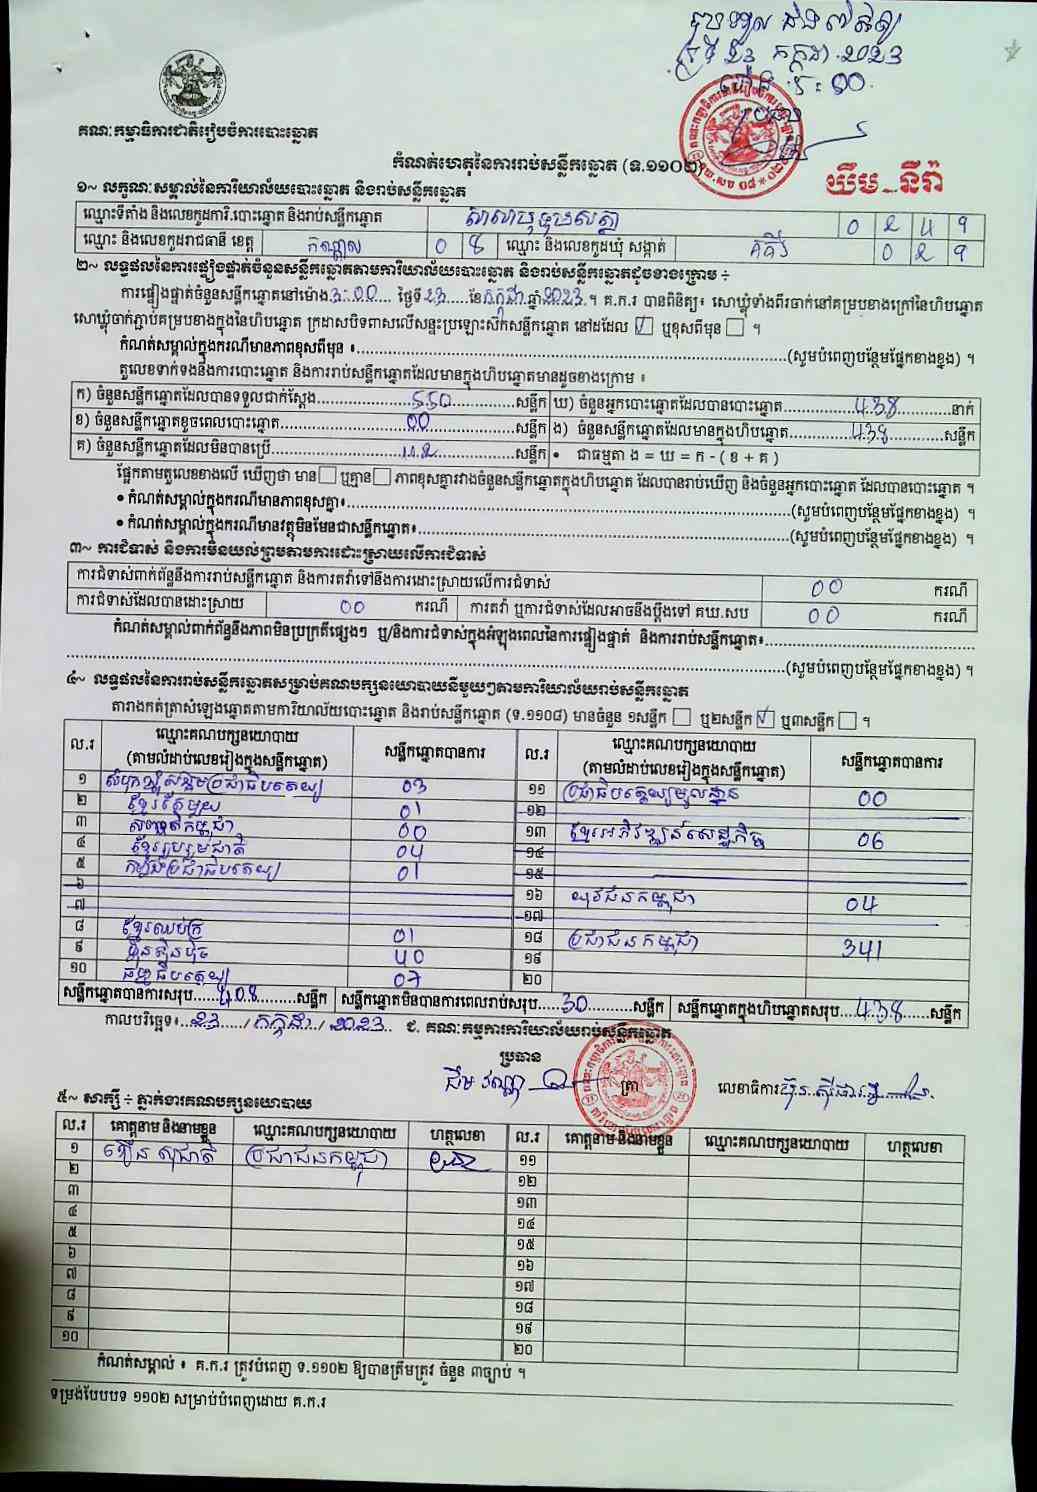 ថ្ងៃទី ២៣ កក្កដា 2023
គណៈកម្មាធិការជាតិរៀបចំការបោះឆ្នោត
កំណត់ហេតុនៃការរាប់សន្លឹកឆ្នោត (ទ.១១០២)
ឃឹម នីរ៉ា
១~ លក្ខណៈសម្គាល់នៃការិយាល័យបោះឆ្នោត និងរាប់សន្លឹកឆ្នោត
ឈ្មោះទីតាំង និងលេខកូដការិ.បោះឆ្នោត និងរាប់សន្លឹកឆ្នោត 0 2 4 9
ឈ្មោះ និងលេខកូដរាជធានី ខេត្ត កណ្តាល 0 8 ឈ្មោះ និងលេខកូដឃុំ សង្កាត់ 0 2 9
២~ លទ្ធផលនៃការផ្ទៀងផ្ទាត់ចំនួនសន្លឹកឆ្នោតតាមការិយាល័យបោះឆ្នោត និងរាប់សន្លឹកឆ្នោតដូចខាងក្រោម ÷
ការផ្ទៀងផ្ទាត់ចំនួនសន្លឹកឆ្នោតនៅម៉ោង 3:00 ថ្ងៃទី 23 ខែ កក្កដា ឆ្នាំ 2023 ។ គ.ក.រ បានពិនិត្យ៖ សោឃ្លុំទាំងពីរចាក់នៅគម្របខាងក្រៅនៃហិបឆ្នោត
សោឃ្លុំចាក់ភ្ជាប់គម្របខាងក្នុងនៃហិបឆ្នោត ក្រដាសបិទពាសលើសន្ទះប្រឡោះស៊កសន្លឹកឆ្នោត នៅដដែល ☑ ឬខុសពីមុន ☐ ។
កំណត់សម្គាល់ក្នុងករណីមានភាពខុសពីមុន ៖ (សូមបំពេញបន្ថែមផ្នែកខាងខ្នង) ។
តួលេខទាក់ទងនឹងការបោះឆ្នោត និងការរាប់សន្លឹកឆ្នោតដែលមានក្នុងហិបឆ្នោតមានដូចខាងក្រោម ៖
ក) ចំនួនសន្លឹកឆ្នោតដែលបានទទួលជាក់ស្តែង 550 សន្លឹក ឃ) ចំនួនអ្នកបោះឆ្នោតដែលបានបោះឆ្នោត 438 នាក់
ខ) ចំនួនសន្លឹកឆ្នោតខូចពេលបោះឆ្នោត 00 សន្លឹក ង) ចំនួនសន្លឹកឆ្នោតដែលមានក្នុងហិបឆ្នោត 438 សន្លឹក
គ) ចំនួនសន្លឹកឆ្នោតដែលមិនបានប្រើ 112 សន្លឹក • ជាធម្មតា ង = ឃ = ក - ( ខ + គ )
ផ្អែកតាមតួលេខខាងលើ ឃើញថា មាន ☐ ឬគ្មាន ☐ ភាពខុសគ្នារវាងចំនួនសន្លឹកឆ្នោតក្នុងហិបឆ្នោត ដែលបានរាប់ឃើញ និងចំនួនអ្នកបោះឆ្នោត ដែលបានបោះឆ្នោត ។
• កំណត់សម្គាល់ក្នុងករណីមានភាពខុសគ្នា៖ (សូមបំពេញបន្ថែមផ្នែកខាងខ្នង) ។
• កំណត់សម្គាល់ក្នុងករណីមានវត្ថុមិនមែនជាសន្លឹកឆ្នោត៖ (សូមបំពេញបន្ថែមផ្នែកខាងខ្នង) ។
៣~ ការជំទាស់ និងការមិនយល់ព្រមតាមការដោះស្រាយលើការជំទាស់
ការជំទាស់ពាក់ព័ន្ធនឹងការរាប់សន្លឹកឆ្នោត និងការតវ៉ាទៅនឹងការដោះស្រាយលើការជំទាស់ 00 ករណី
ការជំទាស់ដែលបានដោះស្រាយ 00 ករណី ការតវ៉ា ឬការជំទាស់ដែលអាចនឹងប្តឹងទៅ គឃ.សប 00 ករណី
កំណត់សម្គាល់ពាក់ព័ន្ធនឹងភាពមិនប្រក្រតីផ្សេងៗ ឬ/និងការជំទាស់ក្នុងអំឡុងពេលនៃការផ្ទៀងផ្ទាត់ និងការរាប់សន្លឹកឆ្នោត៖
(សូមបំពេញបន្ថែមផ្នែកខាងខ្នង) ។
៤~ លទ្ធផលនៃការរាប់សន្លឹកឆ្នោតសម្រាប់គណបក្សនយោបាយនីមួយៗតាមការិយាល័យរាប់សន្លឹកឆ្នោត
តារាងកត់ត្រាសំឡេងឆ្នោតតាមការិយាល័យបោះឆ្នោត និងរាប់សន្លឹកឆ្នោត (ទ.១១០៨) មានចំនួន ១សន្លឹក ☐ ឬ២សន្លឹក ☑ ឬ៣សន្លឹក ☐ ។
ល.រ ឈ្មោះគណបក្សនយោបាយ (តាមលំដាប់លេខរៀងក្នុងសន្លឹកឆ្នោត) សន្លឹកឆ្នោតបានការ ល.រ ឈ្មោះគណបក្សនយោបាយ (តាមលំដាប់លេខរៀងក្នុងសន្លឹកឆ្នោត) សន្លឹកឆ្នោតបានការ
១ សំបុកឃ្មុំសង្គមប្រជាធិបតេយ្យ 03 ១១ ប្រជាធិបតេយ្យមូលដ្ឋាន 00
២ ខ្មែរតែមួយ 01 ១២
៣ សញ្ជាតិកម្ពុជា 00 ១៣ ខ្មែរអភិវឌ្ឍន៍សេដ្ឋកិច្ច 06
៤ ខ្មែររួបរួមជាតិ 04 ១៤
៥ កម្លាំងប្រជាធិបតេយ្យ 01 ១៥
៦ ១៦ យុវជនកម្ពុជា 04
៧ ១៧
៨ ខ្មែរឈប់ក្រ 01 ១៨ ប្រជាជនកម្ពុជា 341
៩ ហ៊្វុនស៊ិនប៉ិច 40 ១៩
១០ ធម្មាធិបតេយ្យ 07 ២០
សន្លឹកឆ្នោតបានការសរុប 408 សន្លឹក សន្លឹកឆ្នោតមិនបានការពេលរាប់សរុប 30 សន្លឹក សន្លឹកឆ្នោតក្នុងហិបឆ្នោតសរុប 438 សន្លឹក
កាលបរិច្ឆេទ៖ 23 / កក្កដា / 2023 ជ. គណៈកម្មការការិយាល័យរាប់សន្លឹកឆ្នោត
ប្រធាន
ត្រា លេខាធិការ
៥~ សាក្សី ÷ ភ្នាក់ងារគណបក្សនយោបាយ
ល.រ គោត្តនាម និងនាមខ្លួន ឈ្មោះគណបក្សនយោបាយ ហត្ថលេខា ល.រ គោត្តនាម និងនាមខ្លួន ឈ្មោះគណបក្សនយោបាយ ហត្ថលេខា
១ សុជាតិ ប្រជាជនកម្ពុជា ១១
២ ១២
៣ ១៣
៤ ១៤
៥ ១៥
៦ ១៦
៧ ១៧
៨ ១៨
៩ ១៩
១០ ២០
កំណត់សម្គាល់ ៖ គ.ក.រ ត្រូវបំពេញ ទ.១១០២ ឱ្យបានត្រឹមត្រូវ ចំនួន ៣ច្បាប់ ។
ទម្រង់បែបបទ ១១០២ សម្រាប់បំពេញដោយ គ.ក.រ